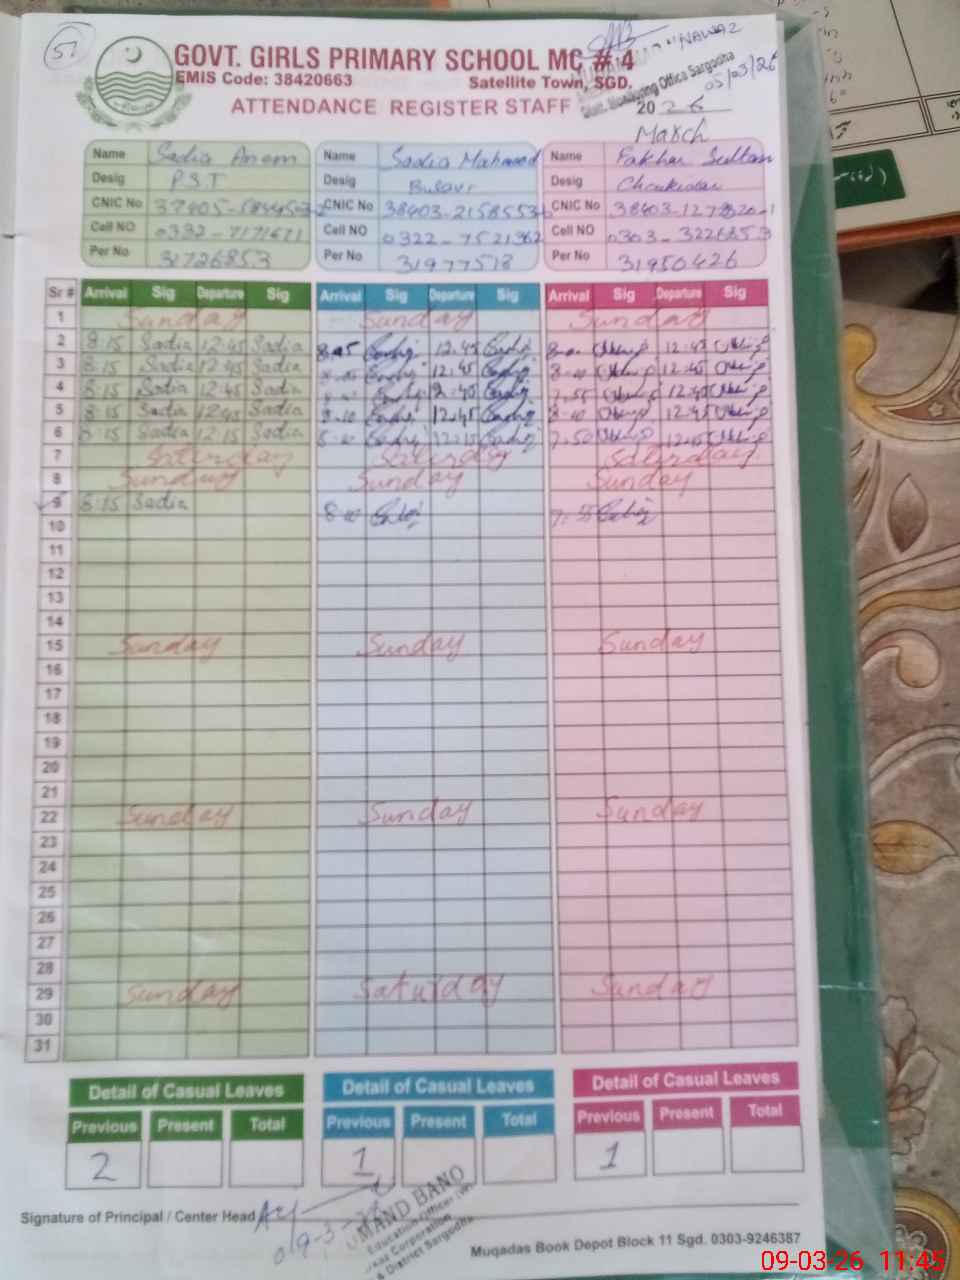 51
GOVT. GIRLS PRIMARY SCHOOL MC # 4
EMIS Code: 38420663 Satellite Town, SGD.
ATTENDANCE REGISTER STAFF 2026
NAWAZ
Monitoring Office Sargodha
05/03/26
March
Name Sadia Anam Name Sadia Mahmood Name Fakhar Sultan
Desig P.S.T Desig Desig Chowkidar
CNIC No CNIC No 38403-2158553 CNIC No
Cell NO 0332-7171671 Cell NO 0322-7521362 Cell NO 0303-3226853
Per No 31726853 Per No 31977518 Per No 31950426
Sr # Arrival Sig Departure Sig Arrival Sig Departure Sig Arrival Sig Departure Sig
1 Sunday Sunday Sunday
2 8:15 Sadia 12:45 Sadia 12:45 12:45
3 8:15 Sadia 12:45 Sadia 12:45 8-10 12:45
4 8:15 Sadia 12:45 Sadia 12:45 7:55 12:45
5 8:15 Sadia 12:45 Sadia 8-10 12:45 8-10 12:45
6 8:15 Sadia 12:15 Sadia 8-10 12:15 7:50 12:15
7 Saturday Saturday Saturday
8 Sunday Sunday Sunday
9 8:15 Sadia 8-10 7:55
10
11
12
13
14
15 Sunday Sunday Sunday
16
17
18
19
20
21
22 Sunday Sunday Sunday
23
24
25
26
27
28
29 Sunday Saturday Sunday
30
31
Detail of Casual Leaves Detail of Casual Leaves Detail of Casual Leaves
Previous Present Total Previous Present Total Previous Present Total
2 1 1
Signature of Principal / Center Head
09-3-26
MAND BANO
Education Officer
Corporation
District Sargodha
Muqadas Book Depot Block 11 Sgd. 0303-9246387
09-03-26 11:45